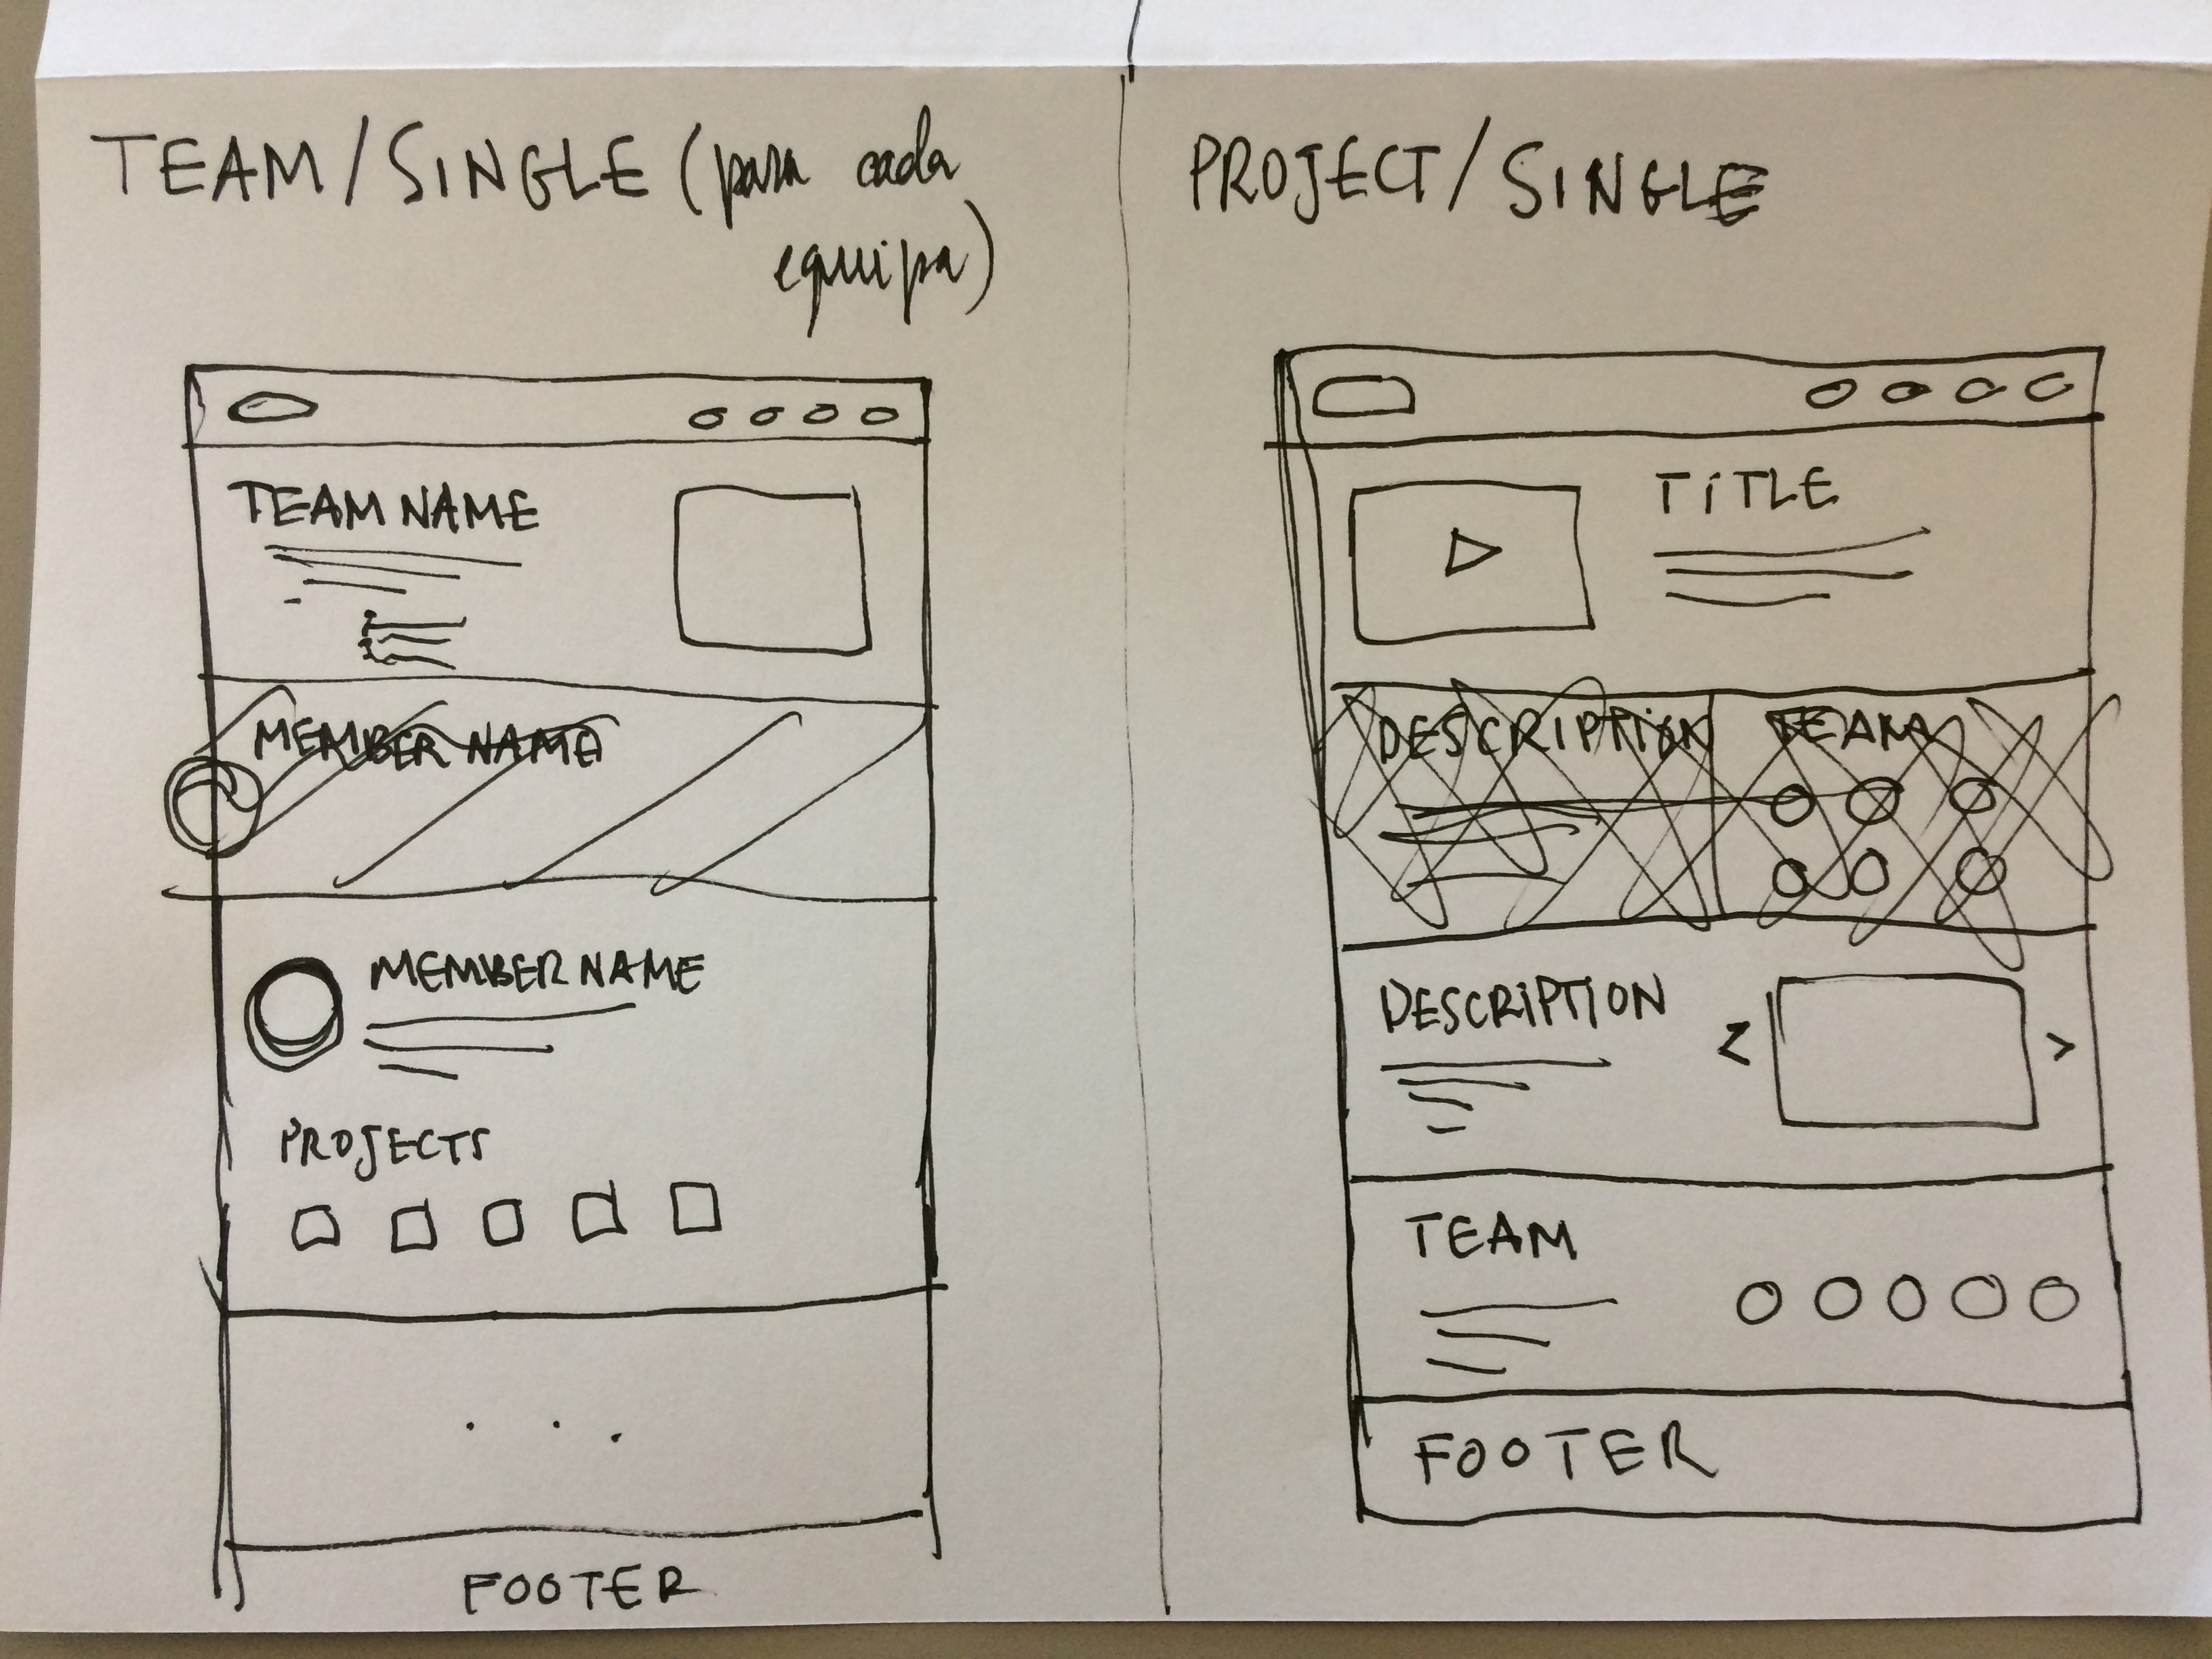 TEAM/SINGLE (para cada
equipa)
TEAM NAME
MEMBER NAME
MEMBER NAME
PROJECTS
. . .
FOOTER
PROJECT/SINGLE
TITLE
DESCRIPTION TEAM
DESCRIPTION
< >
TEAM
FOOTER